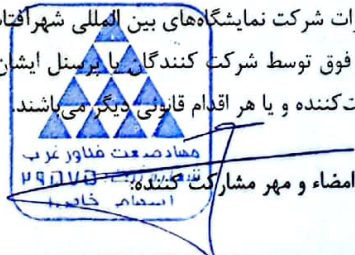 رات شرکت نمایشگاه‌های بین المللی شهرآفتاب
فوق توسط شرکت کنندگان یا پرسنل ایشان
ت‌کننده و یا هر اقدام قانونی دیگر می‌باشند.
مهاد صنعت فناور غرب
۲۹۵۷۵
امضاء و مهر مشارکت کننده: